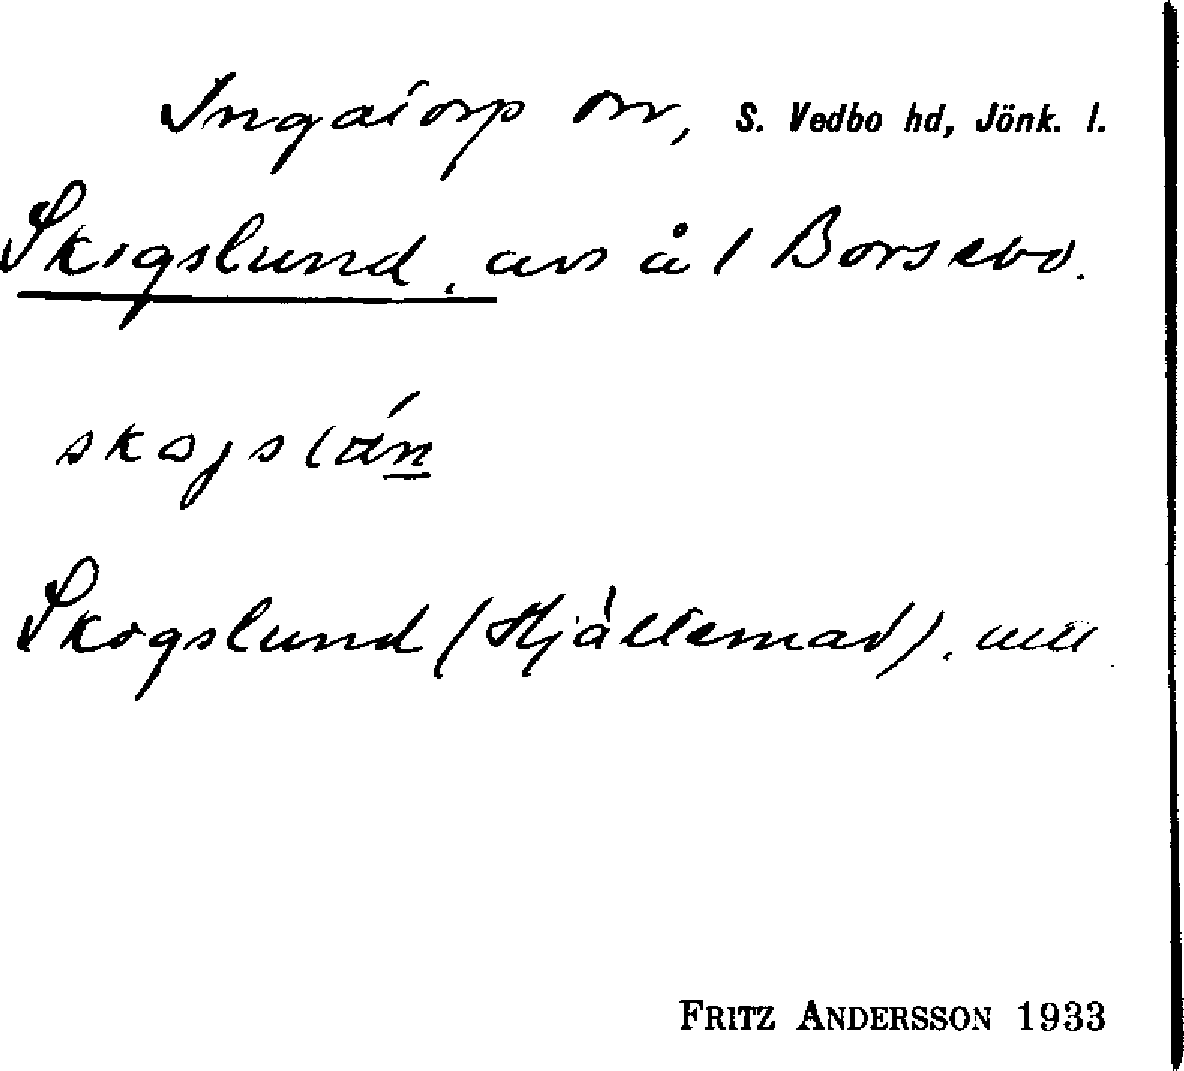 Ingatorp sn, S. Vedbo hd, Jönk. l.
Skogslund. avs å 1 Borsebo.
skogslán
Skogslund (Hjältemad).
FRITZ ANDERSSON 1933